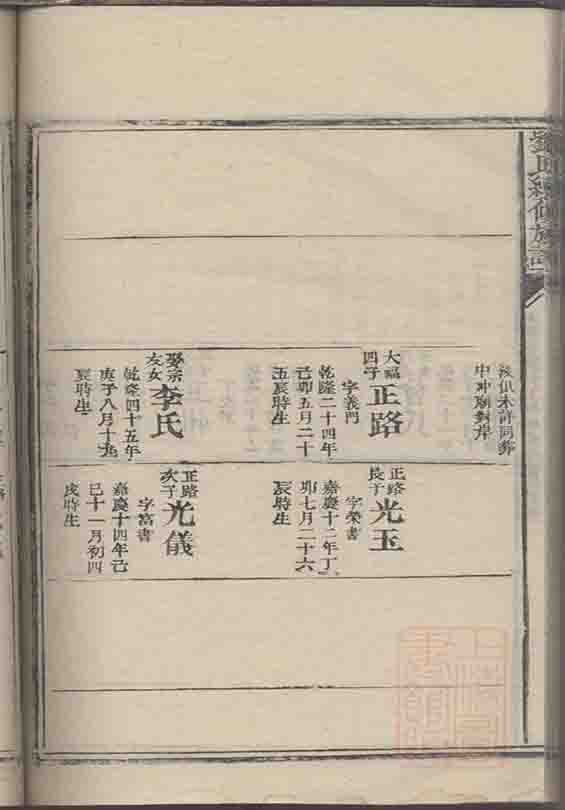 氏續修族譜
許同葬
中冲廟對岸
大福
四子
正路
字義門
乾隆二十四年
己卯五月二十
五亥時生
娶宗
友女
李氏
乾隆四十五年
庚子八月十九
亥時生
正路
長子
光玉
字榮書
嘉慶十二年丁
卯七月二十六
辰時生
正路
次子
光儀
字富書
嘉慶十四年己
巳十一月初四
戌時生